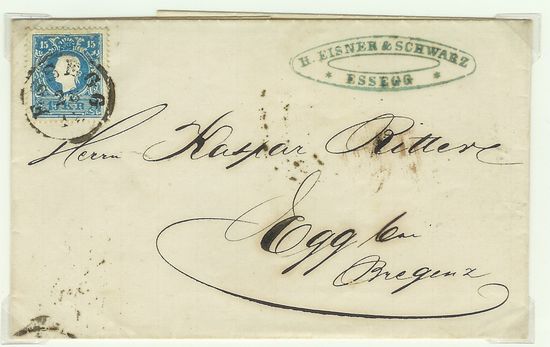 15 15
15 KR
ESSEGG
H. EISNER & SCHWARZ
* ESSEGG *
Herrn Kaspar Ritter
Egg bei
Bregenz